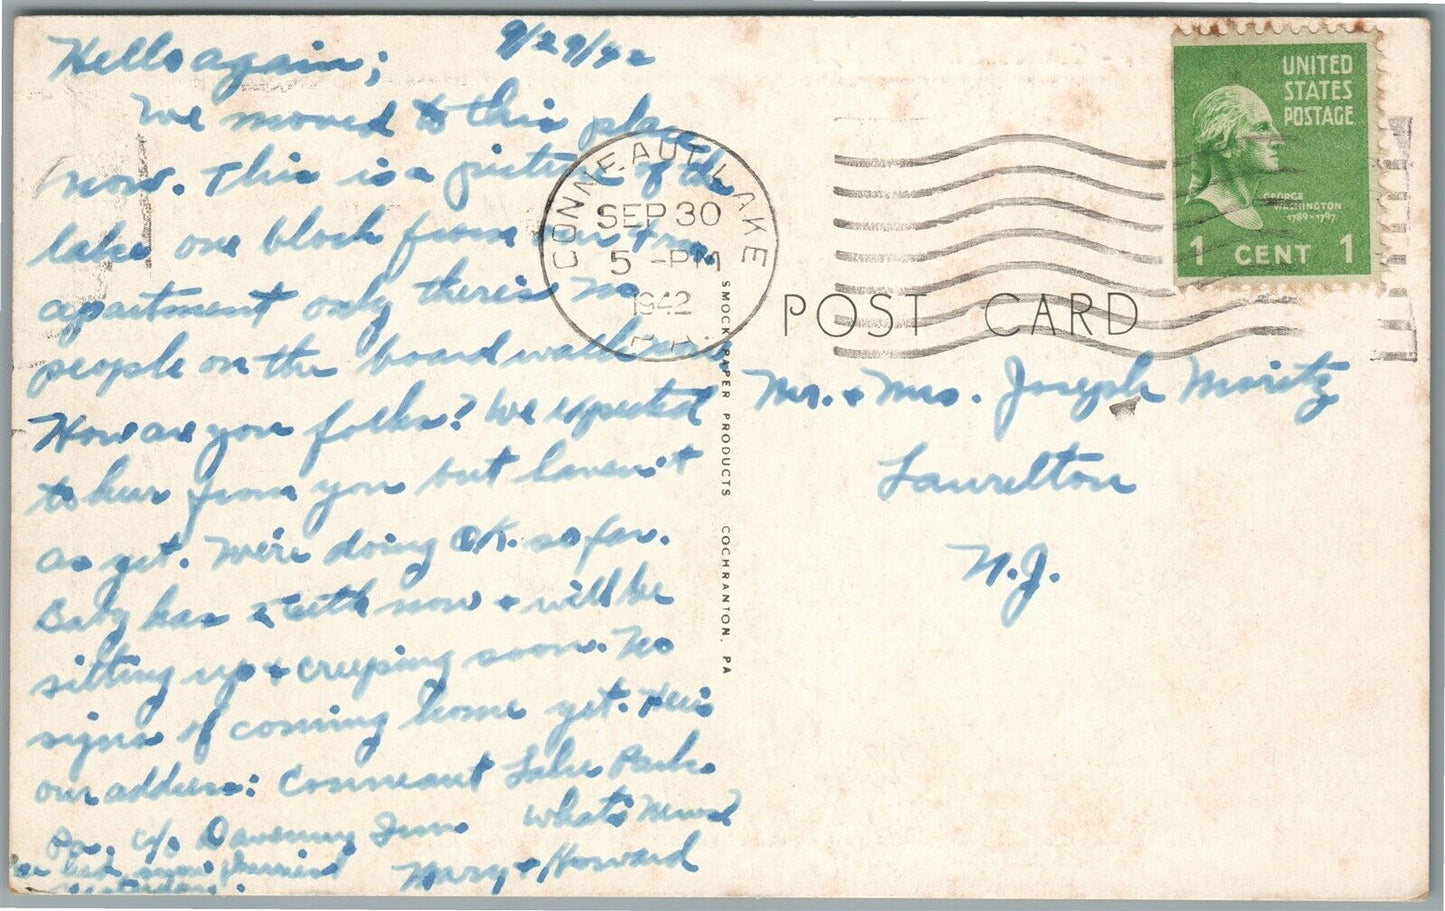 9/29/42
Hello again;
We moved to this place
now. This is a picture of the
lake one block from our
apartment only there's no
people on the boardwalk now.
How are you folks? We expected
to hear from you but haven't
as yet. We're doing OK. so far.
Baby has teeth now + will be
sitting up + creeping soon. No
signs of coming home yet. Here's
our address: Conneaut Lake Park.
Pa. c/o Inn. What's News?
Mary + Howard
yesterday.
CONNEAUT LAKE
SEP 30
5 - PM
1942
PA.
SMOCK PAPER PRODUCTS COCHRANTON, PA
UNITED
STATES
POSTAGE
GEORGE
WASHINGTON
1789-1797
1 CENT 1
POST CARD
Mr. + Mrs. Joseph Moritz
Laurelton
N.J.